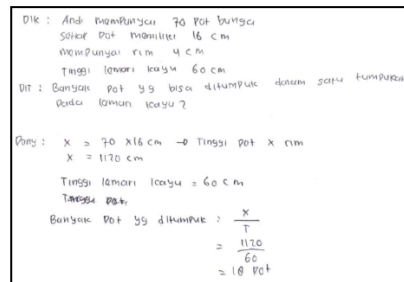 Dik : Andi mempunyai 70 pot bunga
setiap pot memiliki 16 cm
mempunyai rim 4 cm
Tinggi lemari kayu 60 cm
DIT : Banyak pot yg bisa ditumpuk dalam satu tumpukan
pada lemari kayu ?
Penyː x = 70 x 16 cm → Tinggi pot x rim
x = 1120 cm
Tinggi lemari kayu = 60 cm
Banyak pot yg ditumpuk : x
T
= 1120
60
= 18 pot